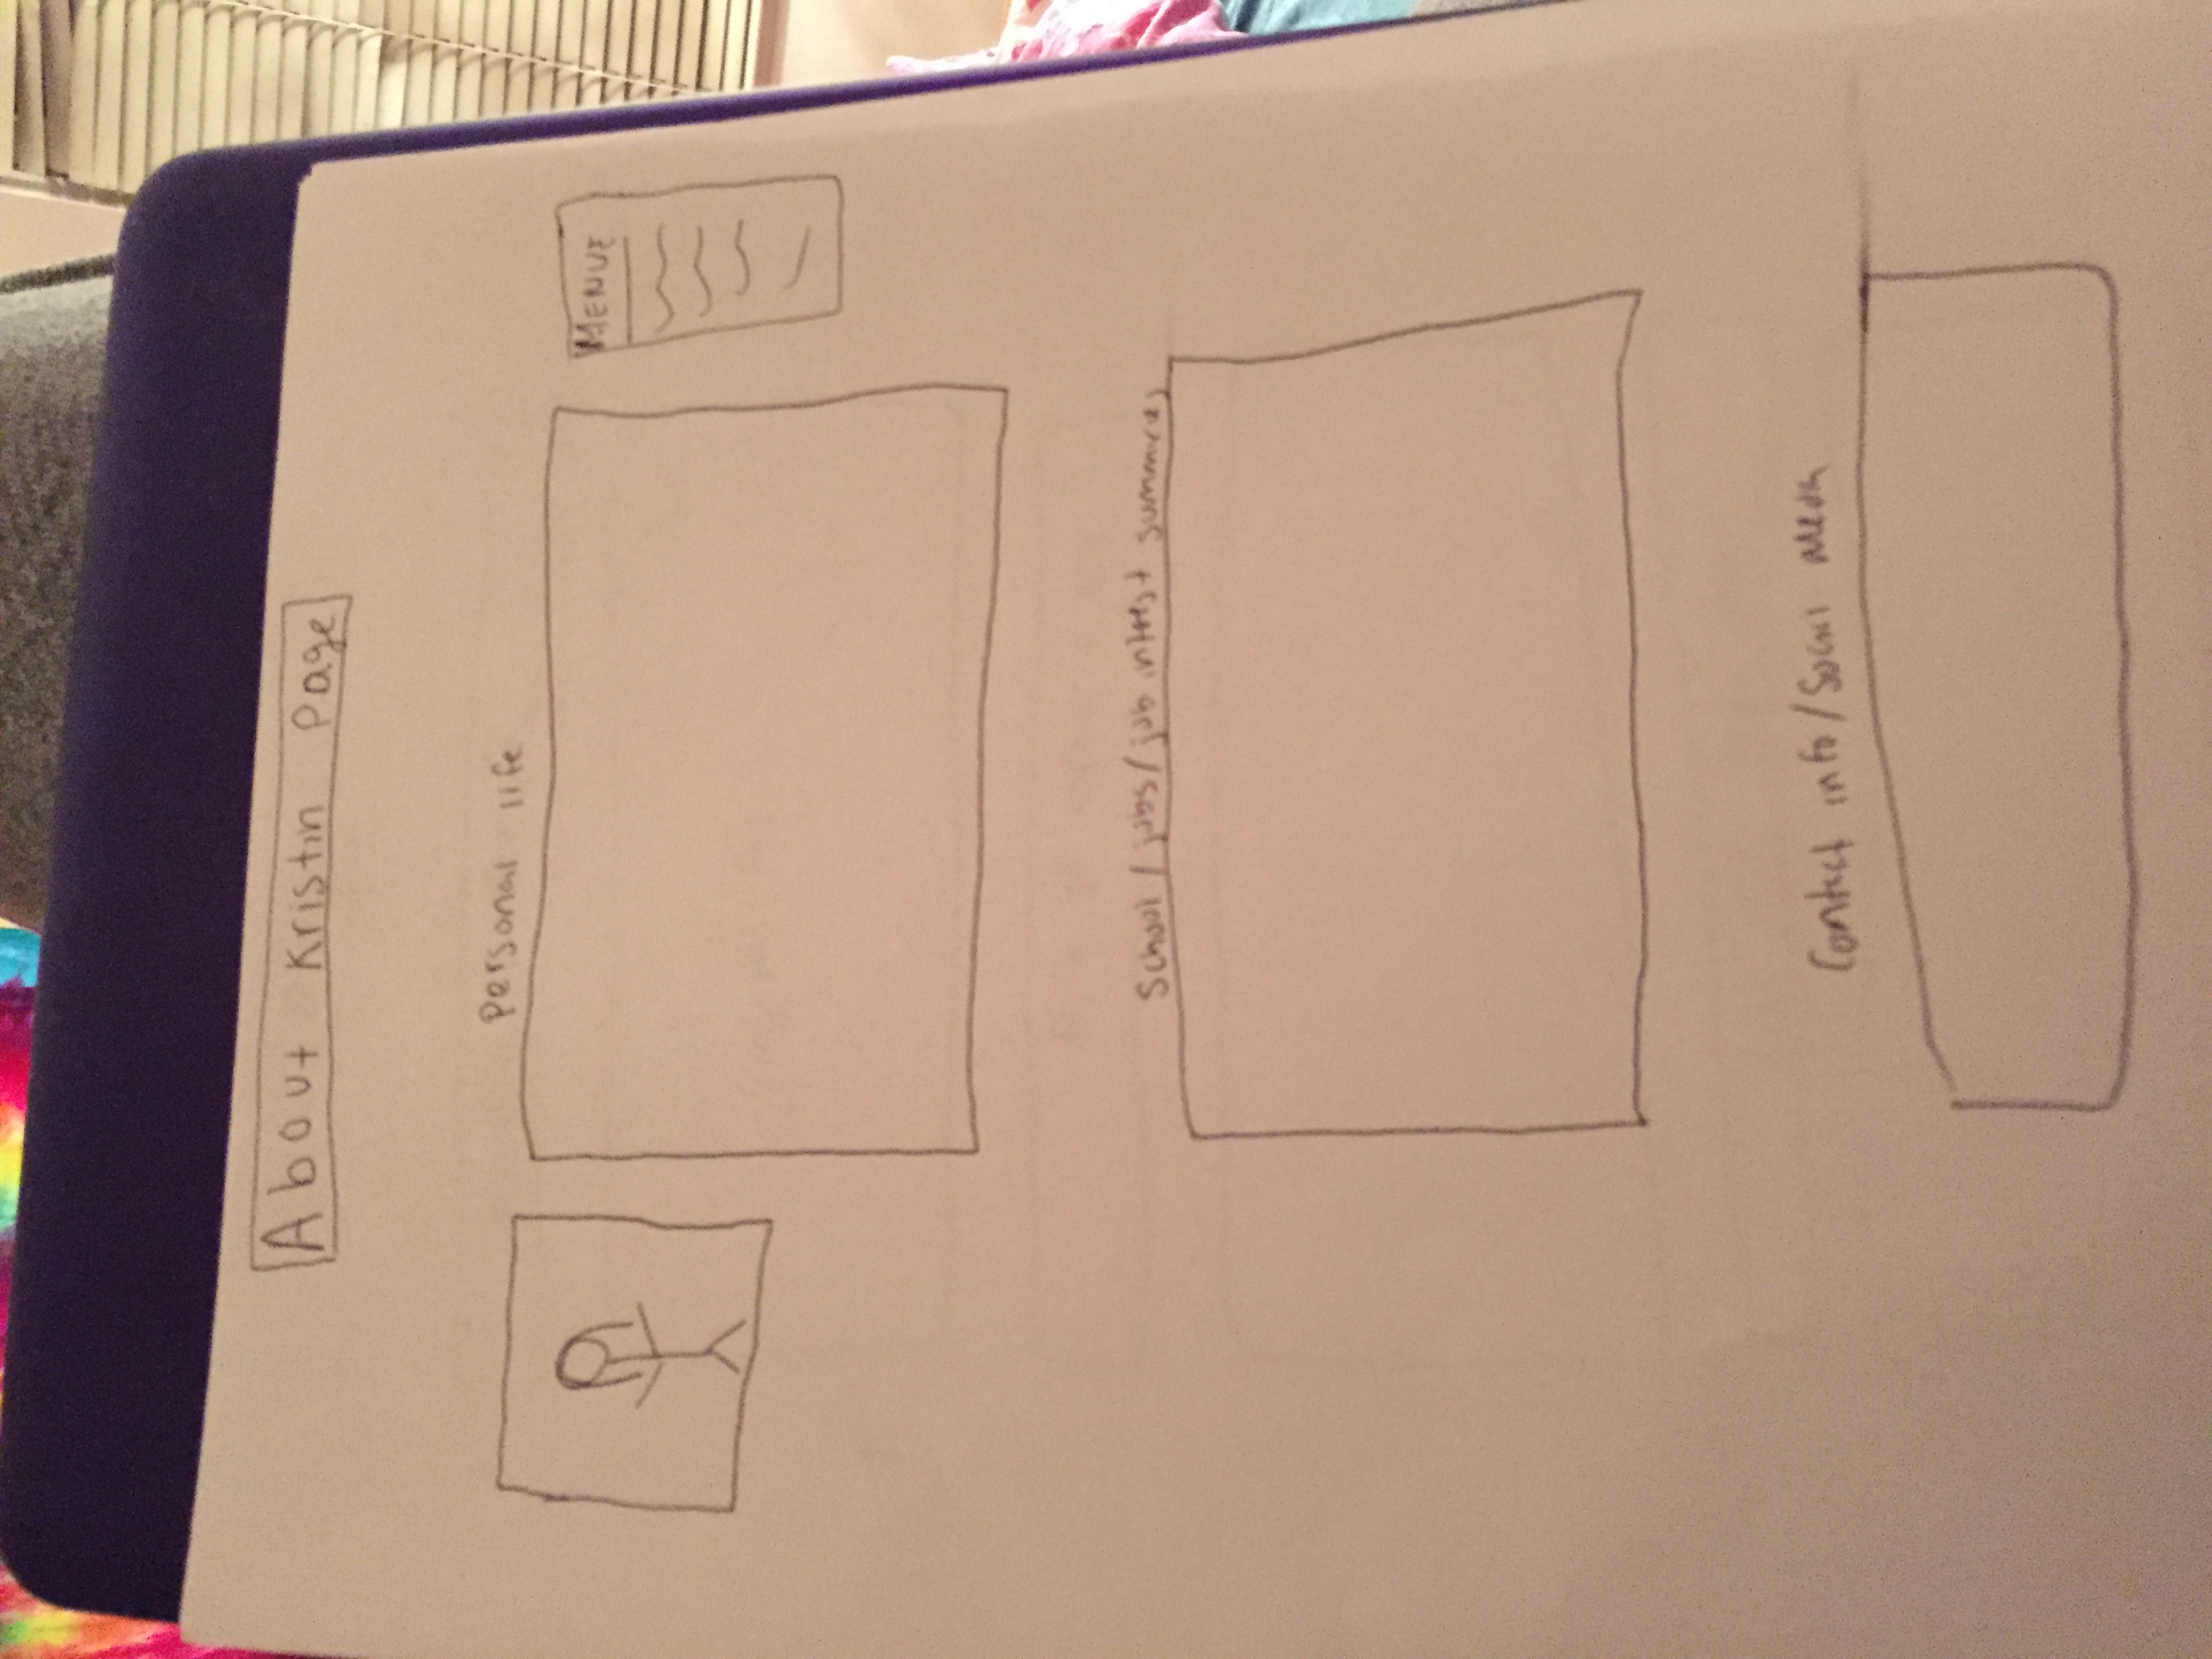 About Kristin Page
Personal life
MENUE
School / jobs / job intrest summries
Contact info / Social Media